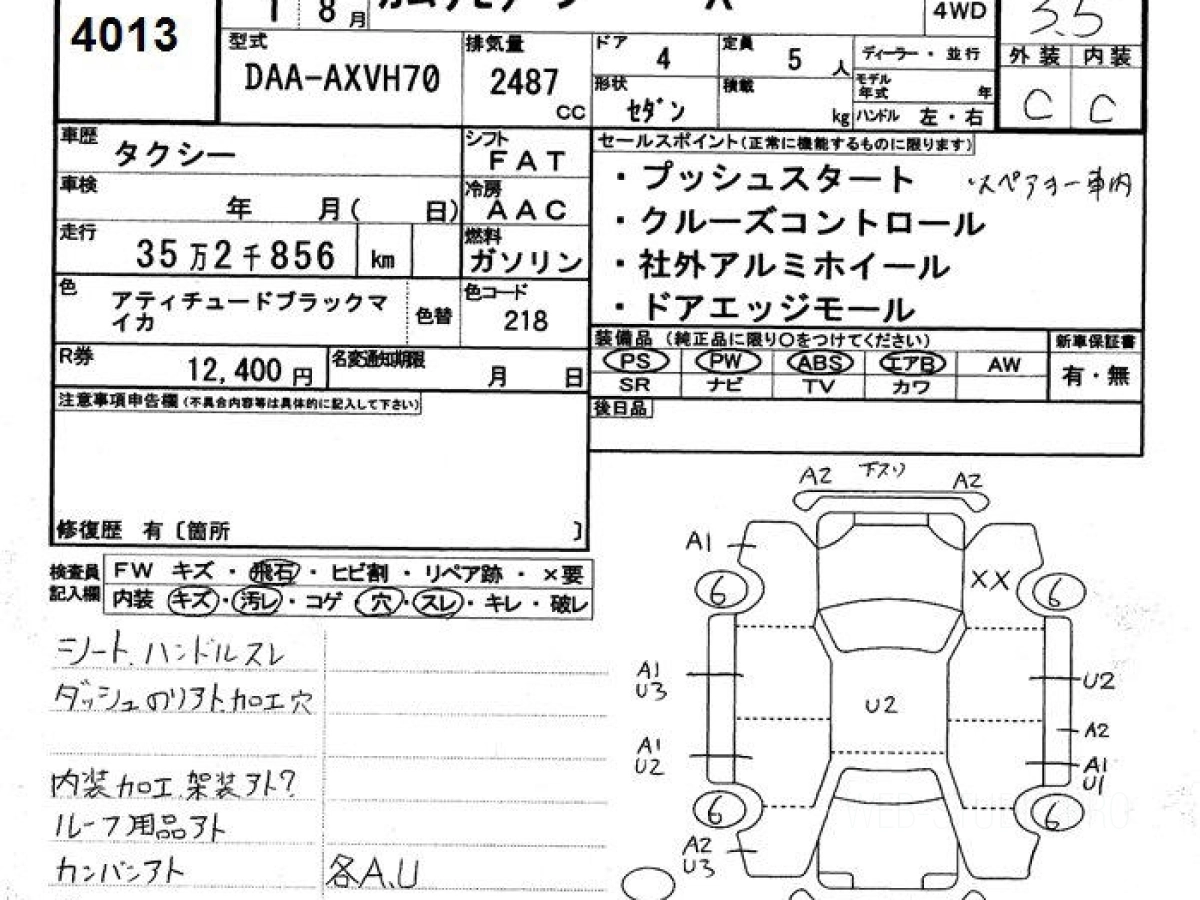 4013
1 8月
4WD
3.5
型式 DAA-AXVH70
排気量 2487 CC
ドア 4
定員 5 人
ディーラー・並行
外装 内装
形状 セダン
積載 kg
モデル年式 年
ハンドル 左・右
C C
車歴 タクシー
シフト FAT
セールスポイント(正常に機能するものに限ります)
・プッシュスタート
・スペアキー車内
・クルーズコントロール
・社外アルミホイール
・ドアエッジモール
車検 年 月( 日)
冷房 AAC
走行 35万2千856 km
燃料 ガソリン
色 アティチュードブラックマイカ
色替
色コード 218
R券 12,400円
名変通知期限 月 日
装備品 (純正品に限り〇をつけてください)
新車保証書
PS PW ABS エアB AW
SR ナビ TV カワ
有・無
後日品
注意事項申告欄(不具合内容等は具体的に記入して下さい)
修復歴 有〔箇所 〕
検査員記入欄
FW キズ・飛石・ヒビ割・リペア跡・×要
内装 キズ・汚レ・コゲ・穴・スレ・キレ・破レ
シート、ハンドルスレ
ダッシュのリアト、加工穴
内装加工、架装アト?
ルーフ用品アト
カンバンアト
各A、U
A2 下スリ A2
A1
XX
6 6
A1
U3
U2
U2
A2
A1
U2
A1
U1
6 6
A2
U3